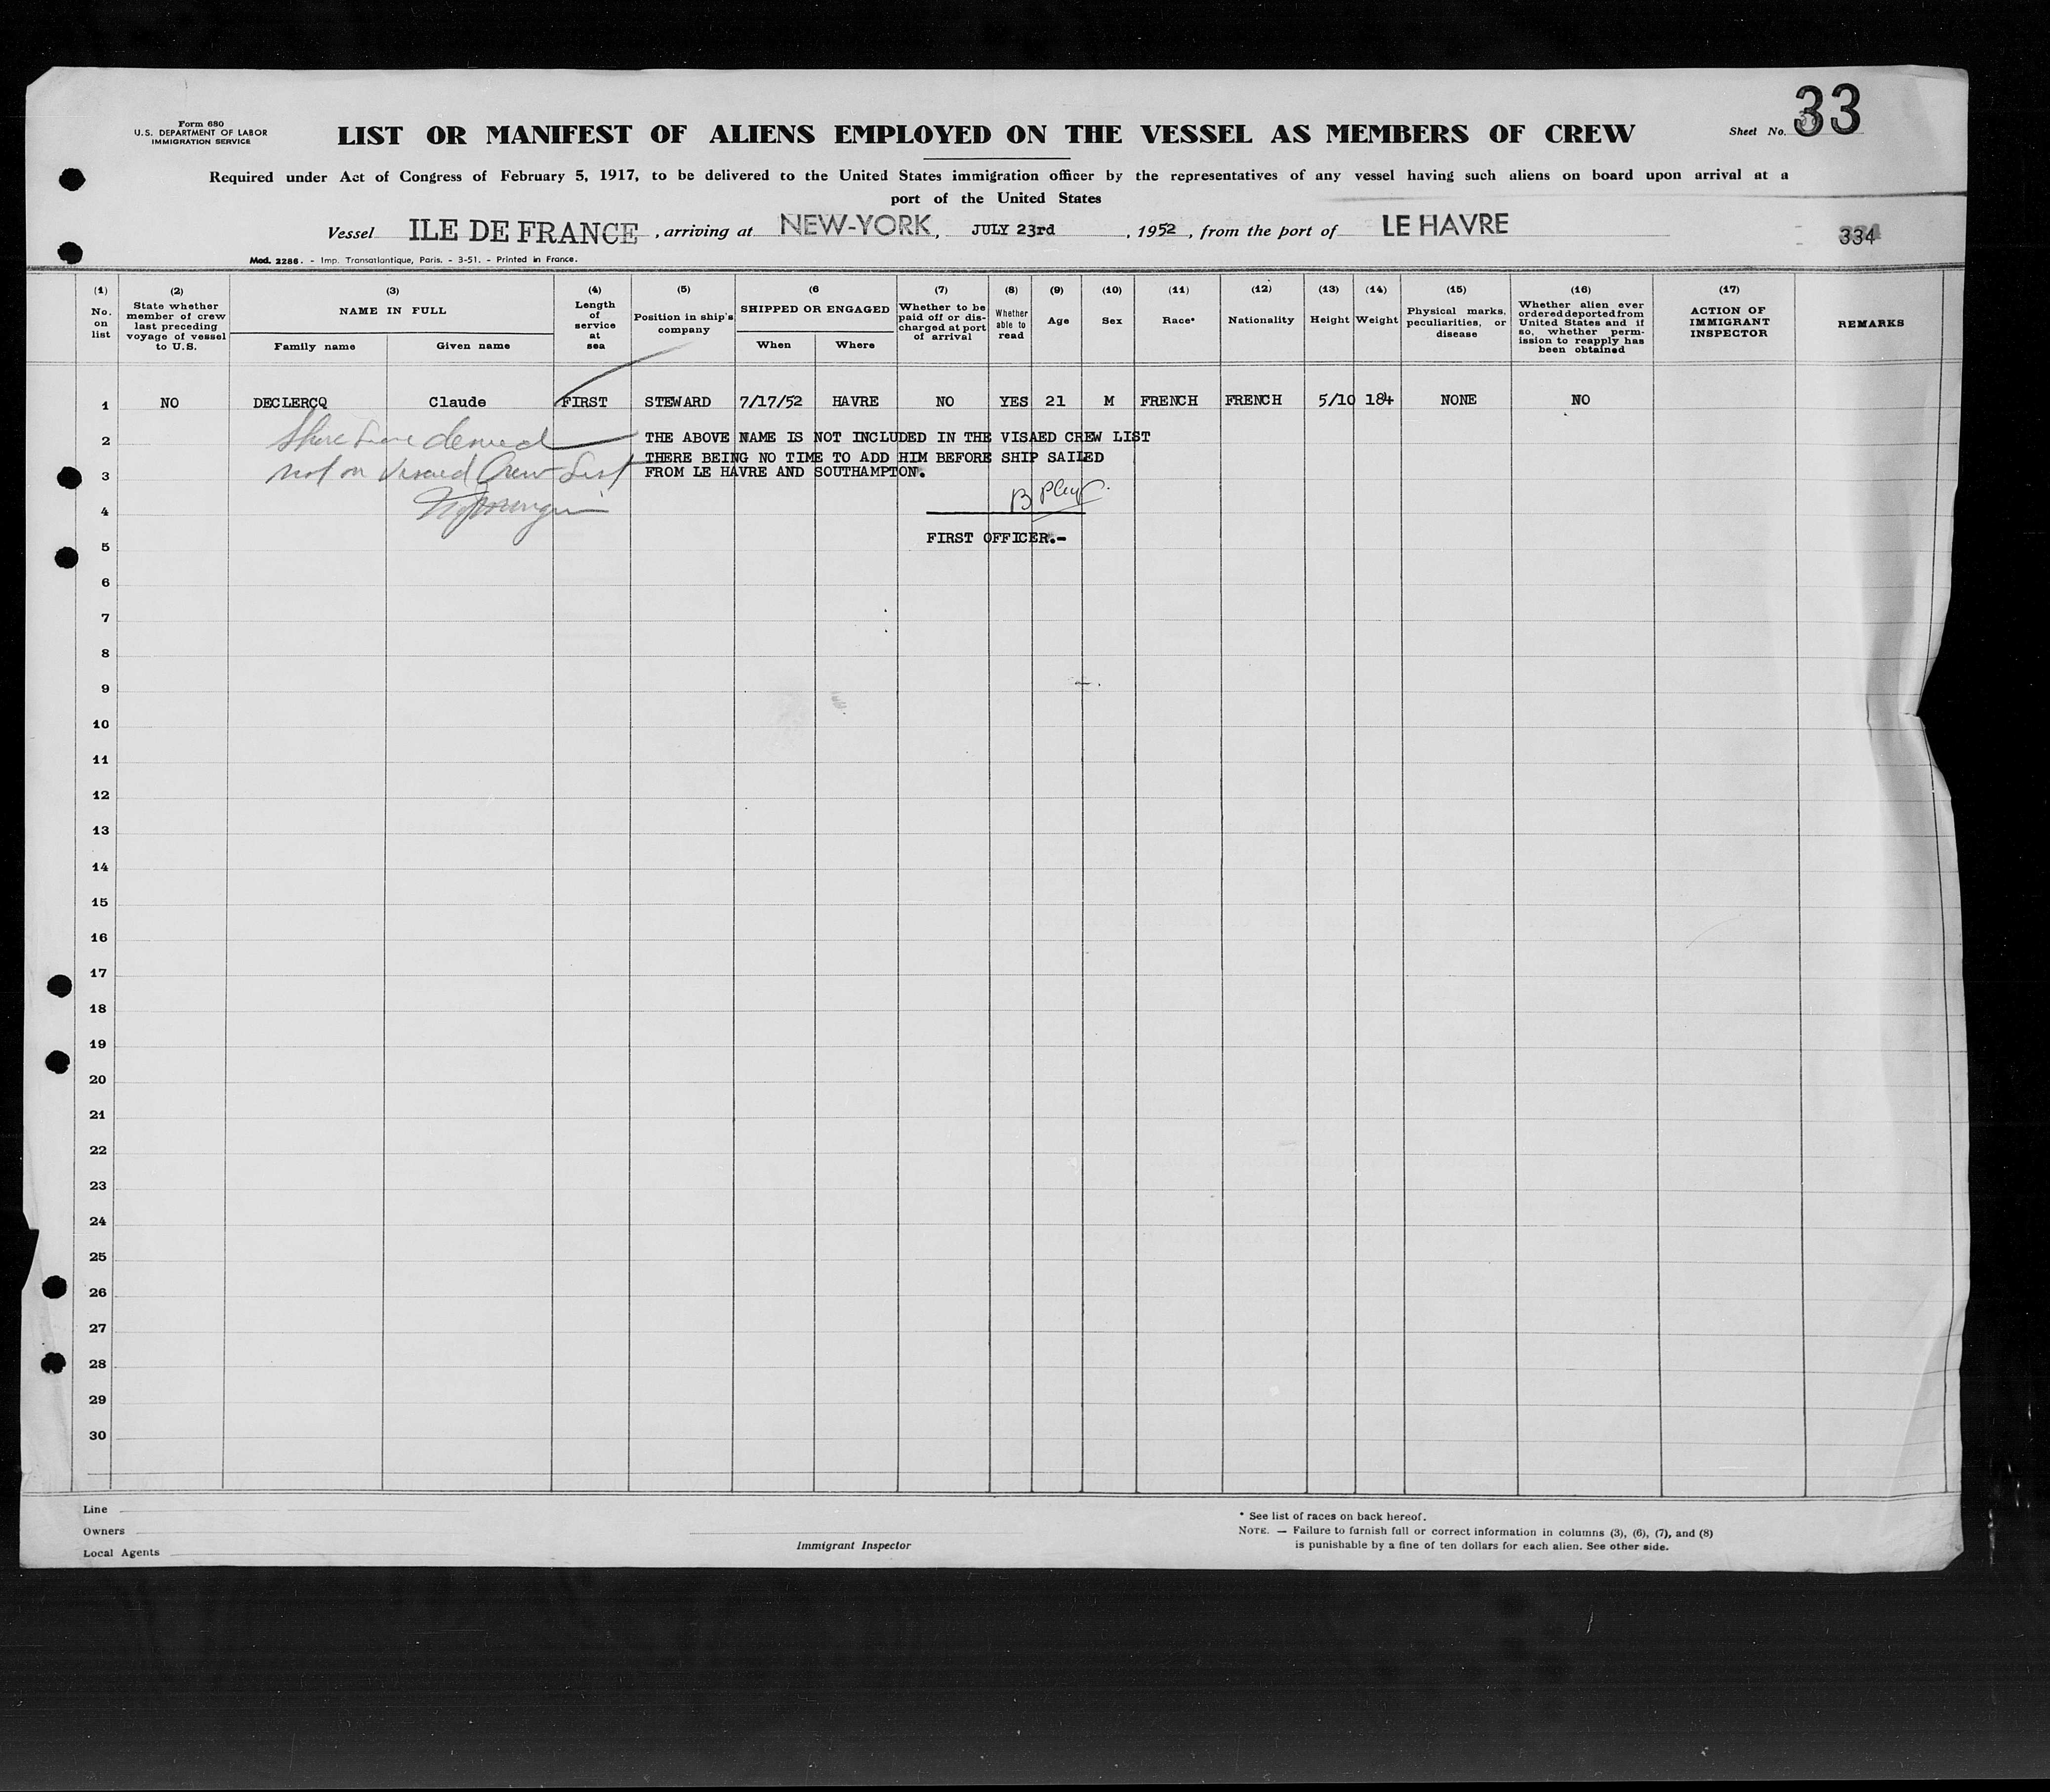 Form 680
U.S. DEPARTMENT OF LABOR
IMMIGRATION SERVICE
LIST OR MANIFEST OF ALIENS EMPLOYED ON THE VESSEL AS MEMBERS OF CREW
Sheet No. 33
Required under Act of Congress of February 5, 1917, to be delivered to the United States immigration officer by the representatives of any vessel having such aliens on board upon arrival at a
port of the United States
Vessel ILE DE FRANCE, arriving at NEW-YORK, JULY 23rd, 1952, from the port of LE HAVRE
334
Mod. 2286. - Imp. Transatlantique, Paris. - 3-51. - Printed in France.
(1) No. on list
(2) State whether member of crew last preceding voyage of vessel to U.S.
(3) NAME IN FULL
Family name
Given name
(4) Length of service at sea
(5) Position in ship's company
(6 SHIPPED OR ENGAGED
When
Where
(7) Whether to be paid off or dis-charged at port of arrival
(8) Whether able to read
(9) Age
(10) Sex
(11) Race*
(12) Nationality
(13) Height
(14) Weight
(15) Physical marks, peculiarities, or disease
(16) Whether alien ever ordered deported from United States and if so, whether perm-ission to reapply has been obtained
(17) ACTION OF IMMIGRANT INSPECTOR
REMARKS
1 NO DECLERCQ Claude FIRST STEWARD 7/17/52 HAVRE NO YES 21 M FRENCH FRENCH 5/10 184 NONE NO
2 Shore Leave denied THE ABOVE NAME IS NOT INCLUDED IN THE VISAED CREW LIST
THERE BEING NO TIME TO ADD HIM BEFORE SHIP SAILED
3 not on Visaed Crew List FROM LE HAVRE AND SOUTHAMPTON.
4
5 FIRST OFFICER.-
6
7
8
9
10
11
12
13
14
15
16
17
18
19
20
21
22
23
24
25
26
27
28
29
30
Line
Owners
Local Agents
Immigrant Inspector
* See list of races on back hereof.
NOTE. — Failure to furnish full or correct information in columns (3), (6), (7), and (8)
is punishable by a fine of ten dollars for each alien. See other side.